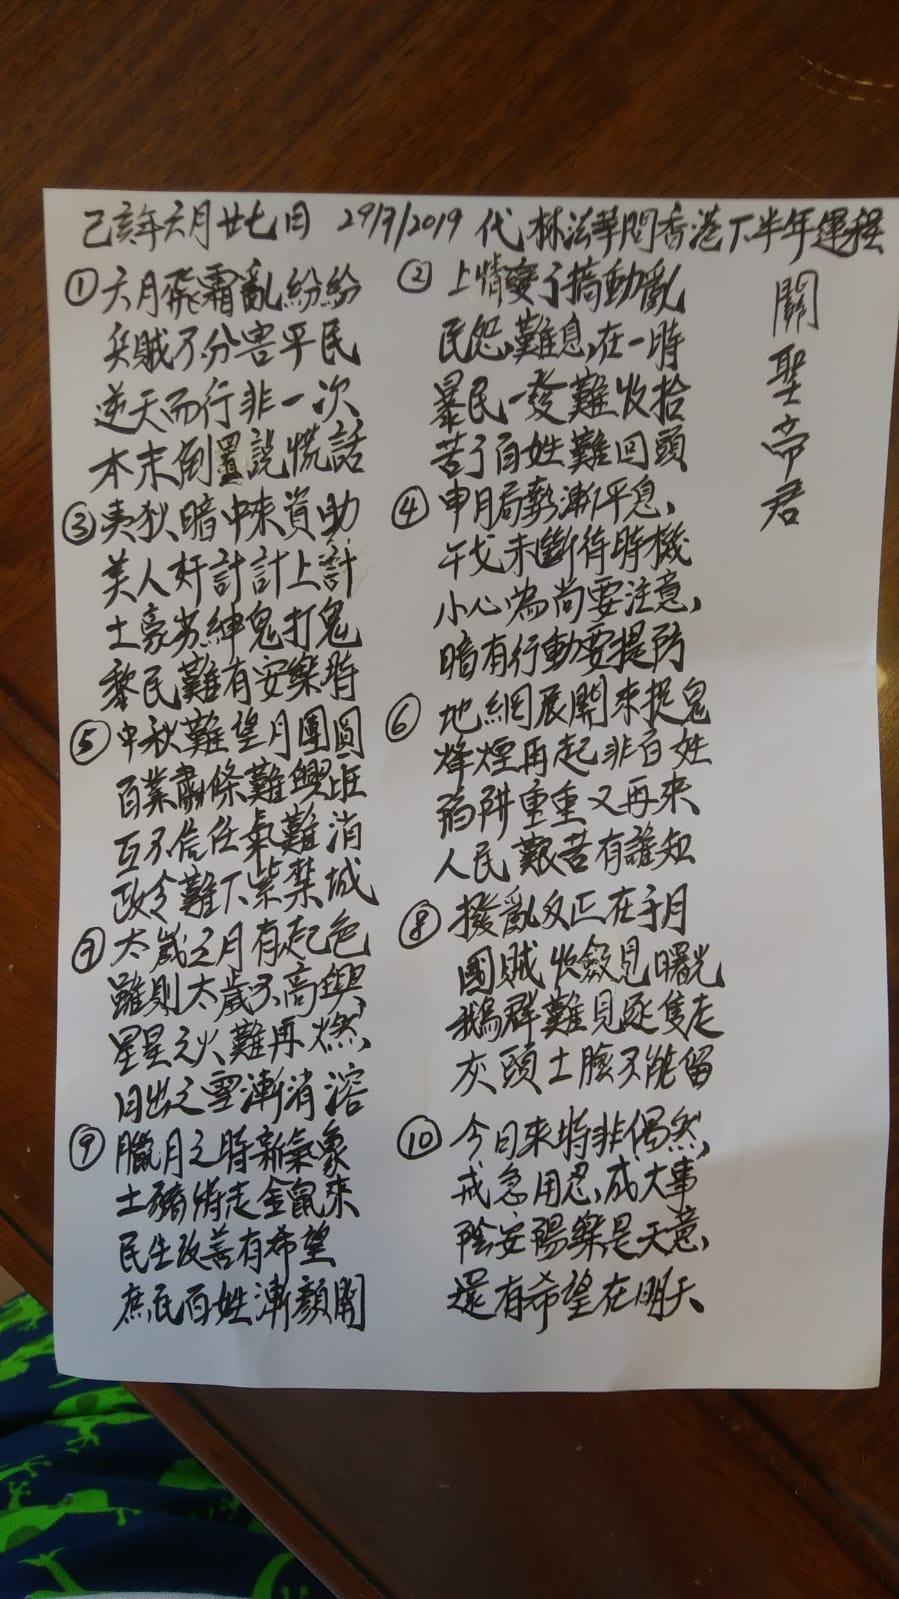 己亥年六月廿七日 29/7/2019 代林法華問香港下半年運程
關聖帝君
① 六月飛霜亂紛紛
兵賊不分害平民
逆天而行非一次
本末倒置說慌話
② 上情變了搞動亂
民怨難息在一時
暴民一發難收拾
苦了百姓難回頭
③ 夷狄暗中來資助
美人奸計計上計
土豪劣紳鬼打鬼
黎民難有安樂時
④ 申月局勢漸平息、
干戈未斷待時機
小心為尚要注意,
暗有行動要提防
⑤ 中秋難望月團圓
百業肅條難興旺
互不信任氣難消
政令難下紫禁城
⑥ 地網展開來捉鬼
烽煙再起非百姓
陷阱重重又再來
人民艱苦有誰知
⑦ 太歲之月有起色
雖則太歲不高興
星星之火難再燃
日出之雪漸消溶
⑧ 撥亂反正在子月
團賊收斂見曙光
鵝群難見逐隻走
灰頭土臉不能留
⑨ 臘月之時新氣象
土豬將走金鼠來
民生改善有希望
庶民百姓漸顏開
⑩ 今日來時非偶然,
戒急用忍,成大事
陰安陽樂是天意,
還有希望在明天